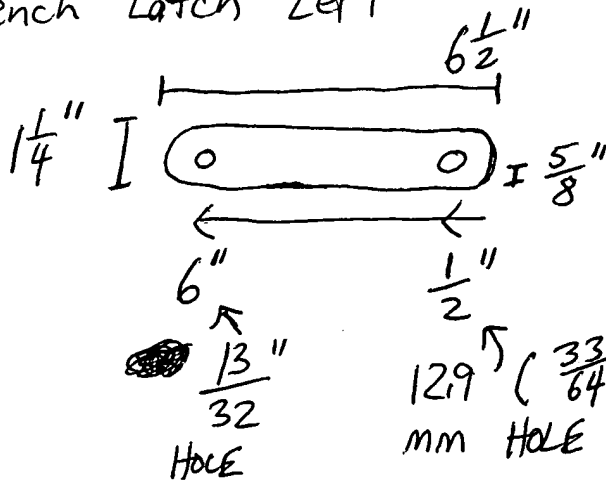 ench Latch Left
6 1/2"
1 1/4"
5/8"
6"
1/2"
13/32"
HOLE
12,9 ( 33/64
mm HOLE